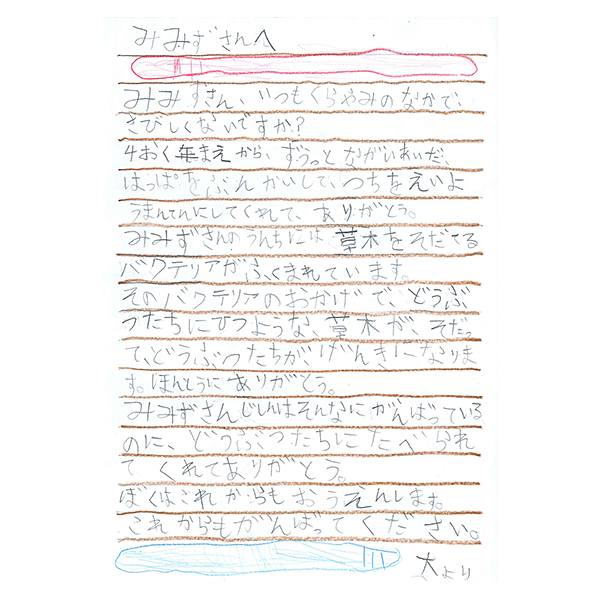 みみずさんへ
みみずさん、いつもくらやみのなかで、
さびしくないですか?
4おく年まえから、ずうっとながいあいだ、
はっぱをぶんかいして、つちをえいよ
うまんてんにしてくれて、ありがとう。
みみずさんのうんちには、草木をそだてる
バクテリアがふくまれています。
そのバクテリアのおかげで、どうぶ
つたちにひつような、草木が、そだっ
て、どうぶつたちが、げんきになりま
す。ほんとうにありがとう。
みみずさんじしんはそんなにがんばっている
のに、どうぶつたちにたべられ
てくれてありがとう。
ぼくはこれからもおうえんします。
これからもがんばってください。
大より